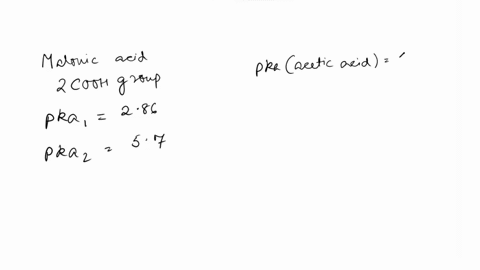 Malonic acid
2 COOH group
pka1 = 2.86
pka2 = 5.7
pka (acetic acid) =